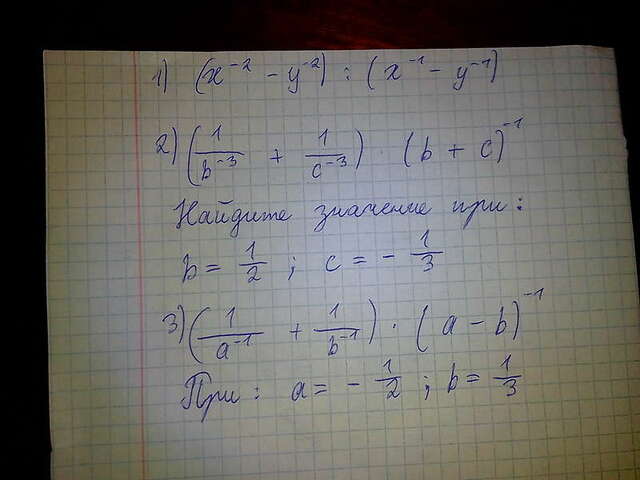 1) (x⁻² - y⁻²) : (x⁻¹ - y⁻¹)
2) (1/b⁻³ + 1/c⁻³) · (b + c)⁻¹
Найдите значение при:
b = 1/2 ; c = - 1/3
3) (1/a⁻¹ + 1/b⁻¹) · (a - b)⁻¹
При: a = - 1/2 ; b = 1/3